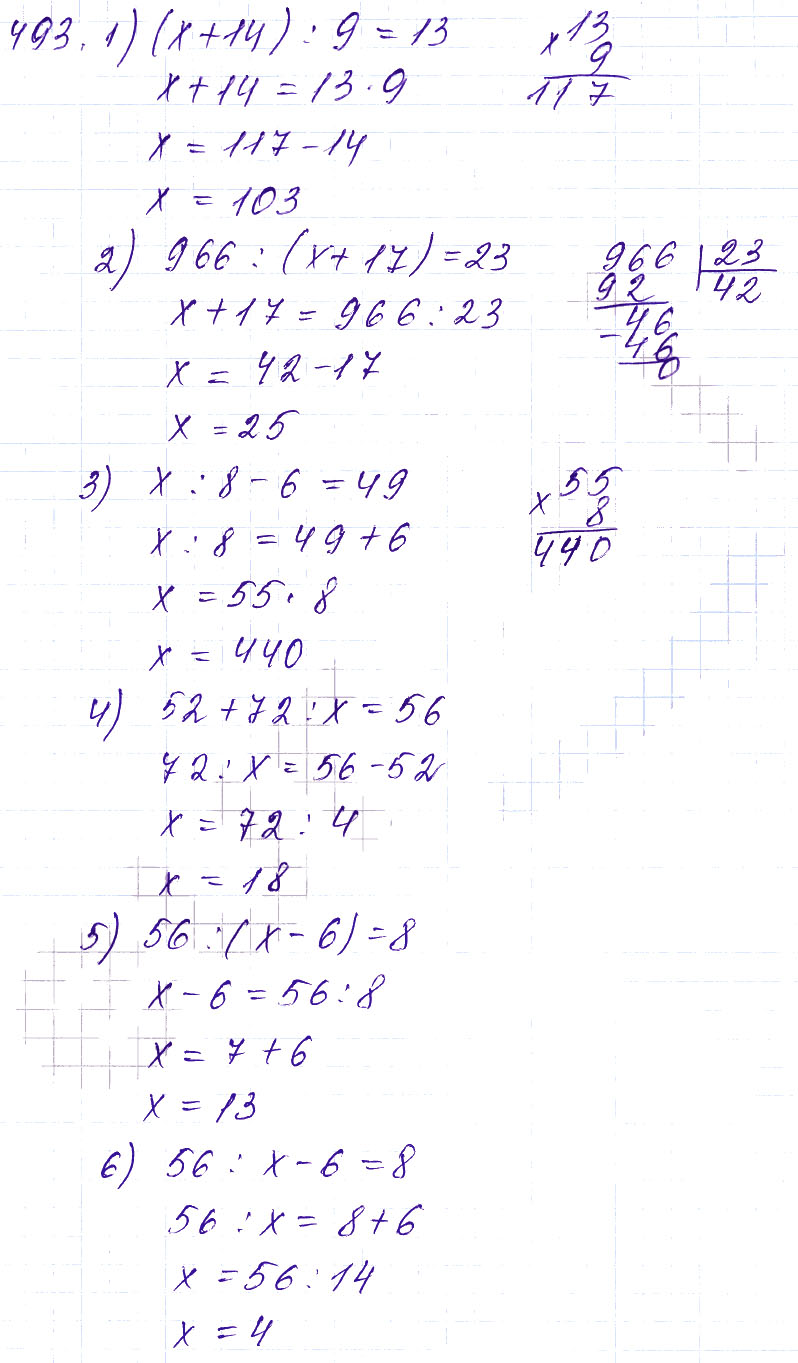 493. 1) (x+14) : 9 = 13
x+14 = 13·9
x = 117-14
x = 103
x 13
9
117
2) 966 : (x+17) = 23
x+17 = 966 : 23
x = 42-17
x = 25
966 | 23
92 42
- 46
46
0
3) x : 8 - 6 = 49
x : 8 = 49+6
x = 55 · 8
x = 440
x 55
8
440
4) 52+72 : x = 56
72 : x = 56-52
x = 72 : 4
x = 18
5) 56 : (x-6) = 8
x-6 = 56 : 8
x = 7+6
x = 13
6) 56 : x-6 = 8
56 : x = 8+6
x = 56 : 14
x = 4